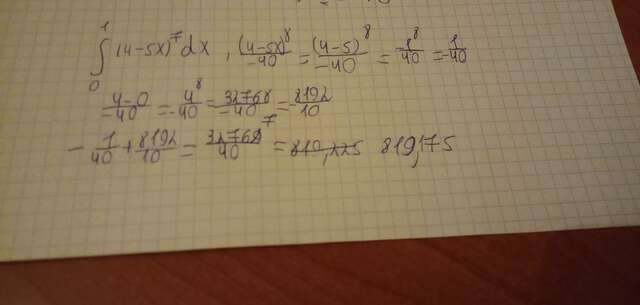 ∫₀¹ (4-5x)⁷dx, (4-5x)⁸/-40 = (4-5)⁸/-40 = 1⁸/40 = -1/40
4-0/-40 = 4⁸/-40 = 32768/-40 = -8192/10
- 1/40 + 8192/10 = 32767/40 = 819,175